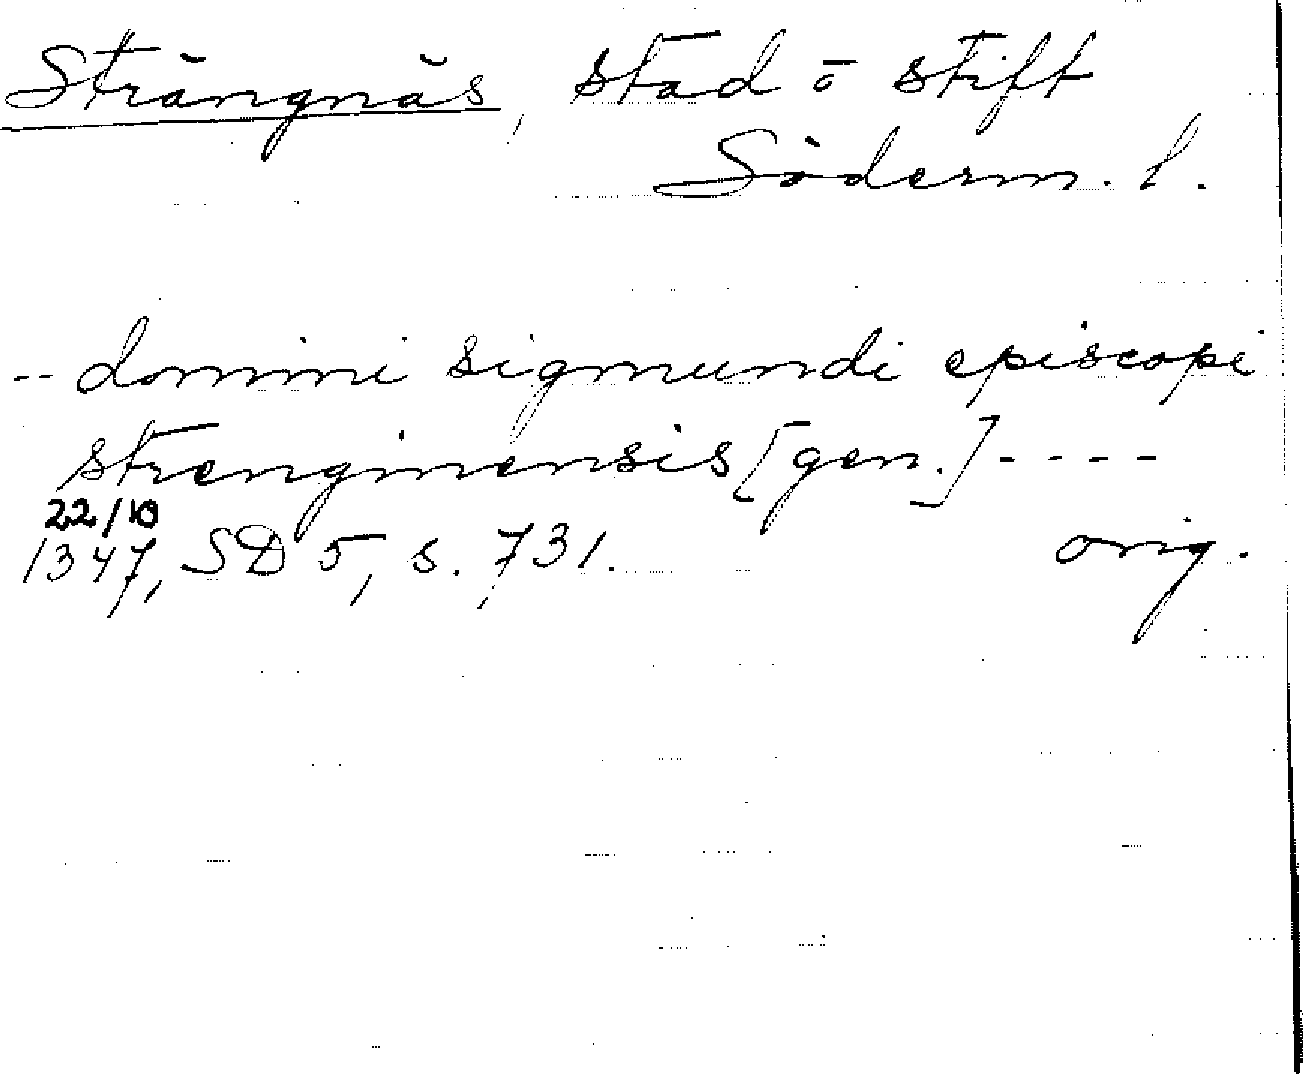 Strängnäs, stad o stift
Söderm. l.
-- domini sigmundi episcopi
strenginensis [gen.] ----
22/10
1347, SD 5, s. 731. orig.